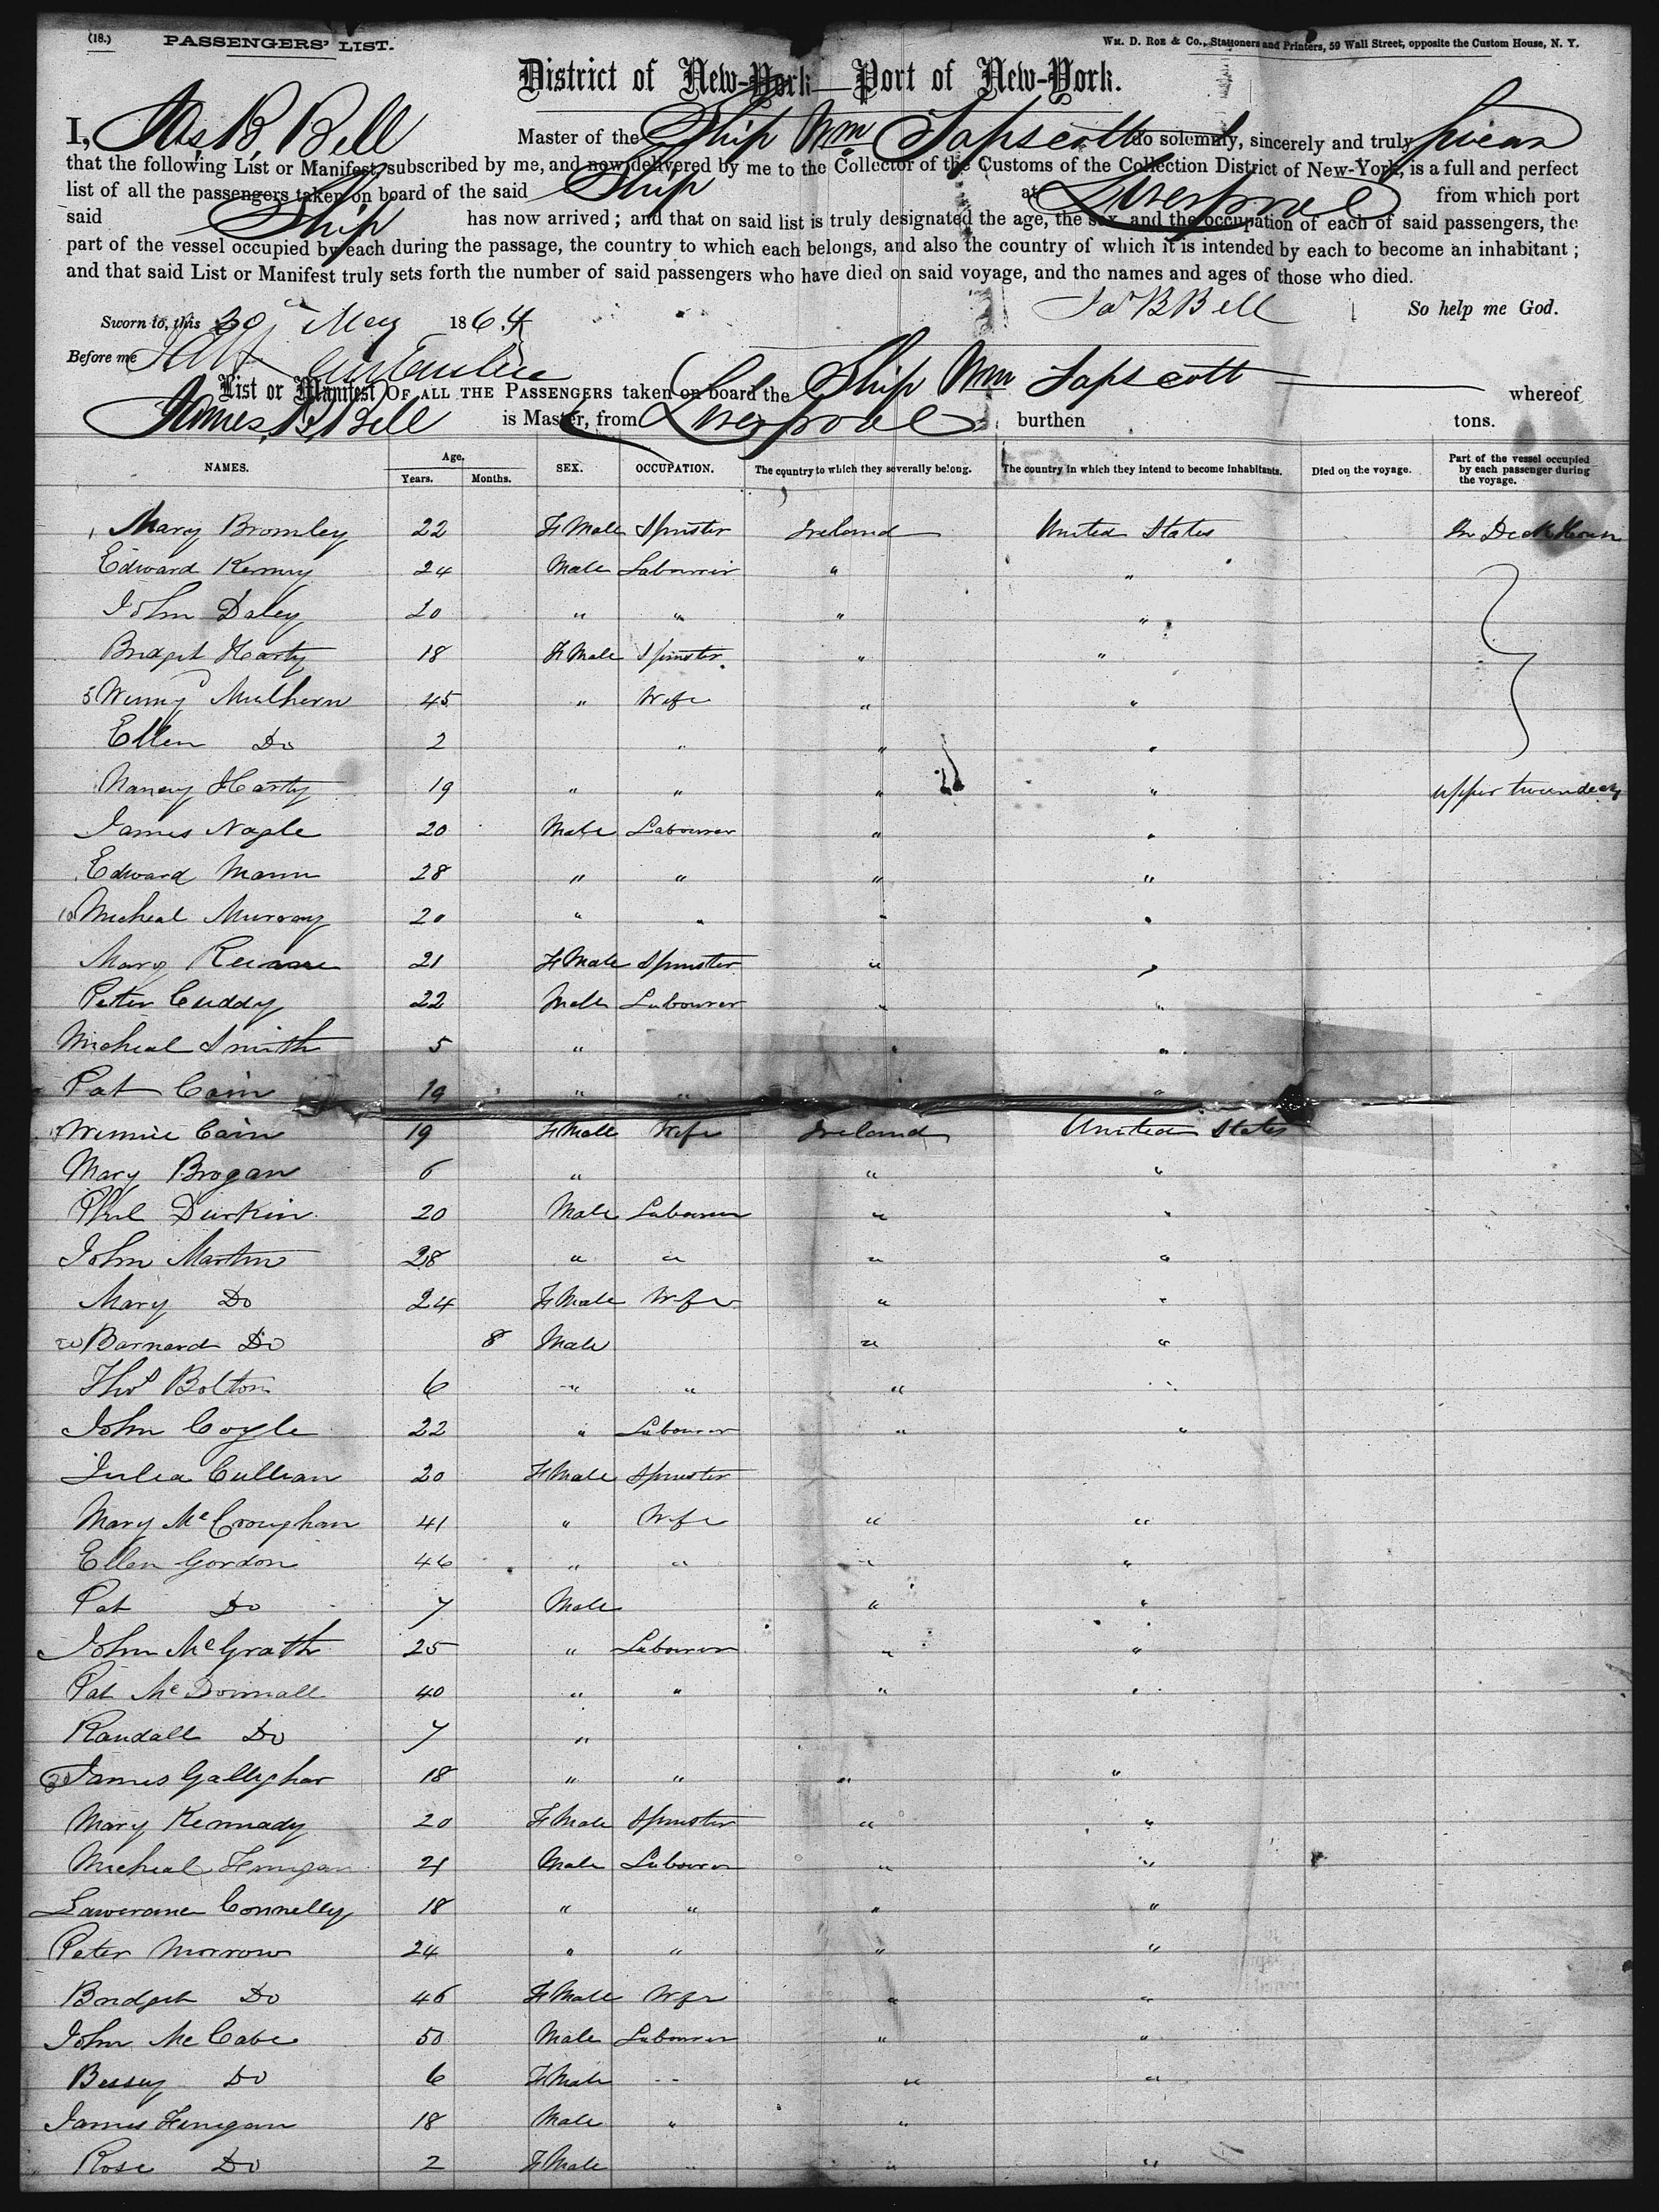 (18.) PASSENGERS' LIST. Wm. D. Roe & Co., Stationers and Printers, 59 Wall Street, opposite the Custom House, N. Y.
District of New-York—Port of New-York.
I, Jas. B. Bell Master of the Ship Wm Tapscott do solemnly, sincerely and truly swear
that the following List or Manifest, subscribed by me, and now delivered by me to the Collector of the Customs of the Collection District of New-York, is a full and perfect
list of all the passengers taken on board of the said Ship at Liverpool from which port
said Ship has now arrived; and that on said list is truly designated the age, the sex, and the occupation of each of said passengers, the
part of the vessel occupied by each during the passage, the country to which each belongs, and also the country of which it is intended by each to become an inhabitant;
and that said List or Manifest truly sets forth the number of said passengers who have died on said voyage, and the names and ages of those who died.
Jas B Bell So help me God.
Sworn to, this 30 May 1864
Before me
List or Manifest OF ALL THE PASSENGERS taken on board the Ship Wm Tapscott whereof
James B. Bell is Master, from Liverpool burthen tons.
NAMES. Age. Years. Months. SEX. OCCUPATION. The country to which they severally belong. The country in which they intend to become inhabitants. Died on the voyage. Part of the vessel occupied by each passenger during the voyage.
1 Mary Bromley 22 FMale Spinster Ireland United States In Deck House
Edward Kenny 24 Male Labourer " "
John Daley 20 " " " "
Bridget Harty 18 FMale Spinster " "
5 Winny Mulhern 45 " Wife " "
Ellen Do 2 " " "
Nancy Harty 19 " " " " upper tweendecks
James Nagle 20 Male Labourer " "
Edward Mann 28 " " " "
10 Micheal Murray 20 " " " "
Mary 21 FMale Spinster " "
Peter Cuddy 22 Male Labourer " "
Micheal Smith 5 " " "
Pat Cain 19 " " "
Winnie Cain 19 FMale Wife Ireland United States
Mary Brogan 6 " " "
Phil Durkin 20 Male Labourer " "
John Martin 28 " " " "
Mary Do 24 FMale Wife " "
20 Barnard Do 8 Male " "
Thos Bolton 6 " " " "
John Coyle 22 " Labourer " "
Julia Cullian 20 FMale Spinster
Mary McCroughan 41 " Wife " "
Ellen Gordon 46 " " " "
Pat Do 7 Male " "
John McGrath 25 " Labourer " "
Pat McDonnall 40 " " " "
Randall Do 7 "
30 James Gallighar 18 " " " "
Mary Kennady 20 FMale Spinster " "
Micheal Finigan 21 Male Labourer " "
Lawerance Connelly 18 " " " "
Peter Morrow 24 " " " "
Bridget Do 46 FMale Wife " "
John McCabe 50 Male Labourer " "
Bessey Do 6 FMale " " "
James Finigan 18 Male " "
Rose Do 2 FMale " " "